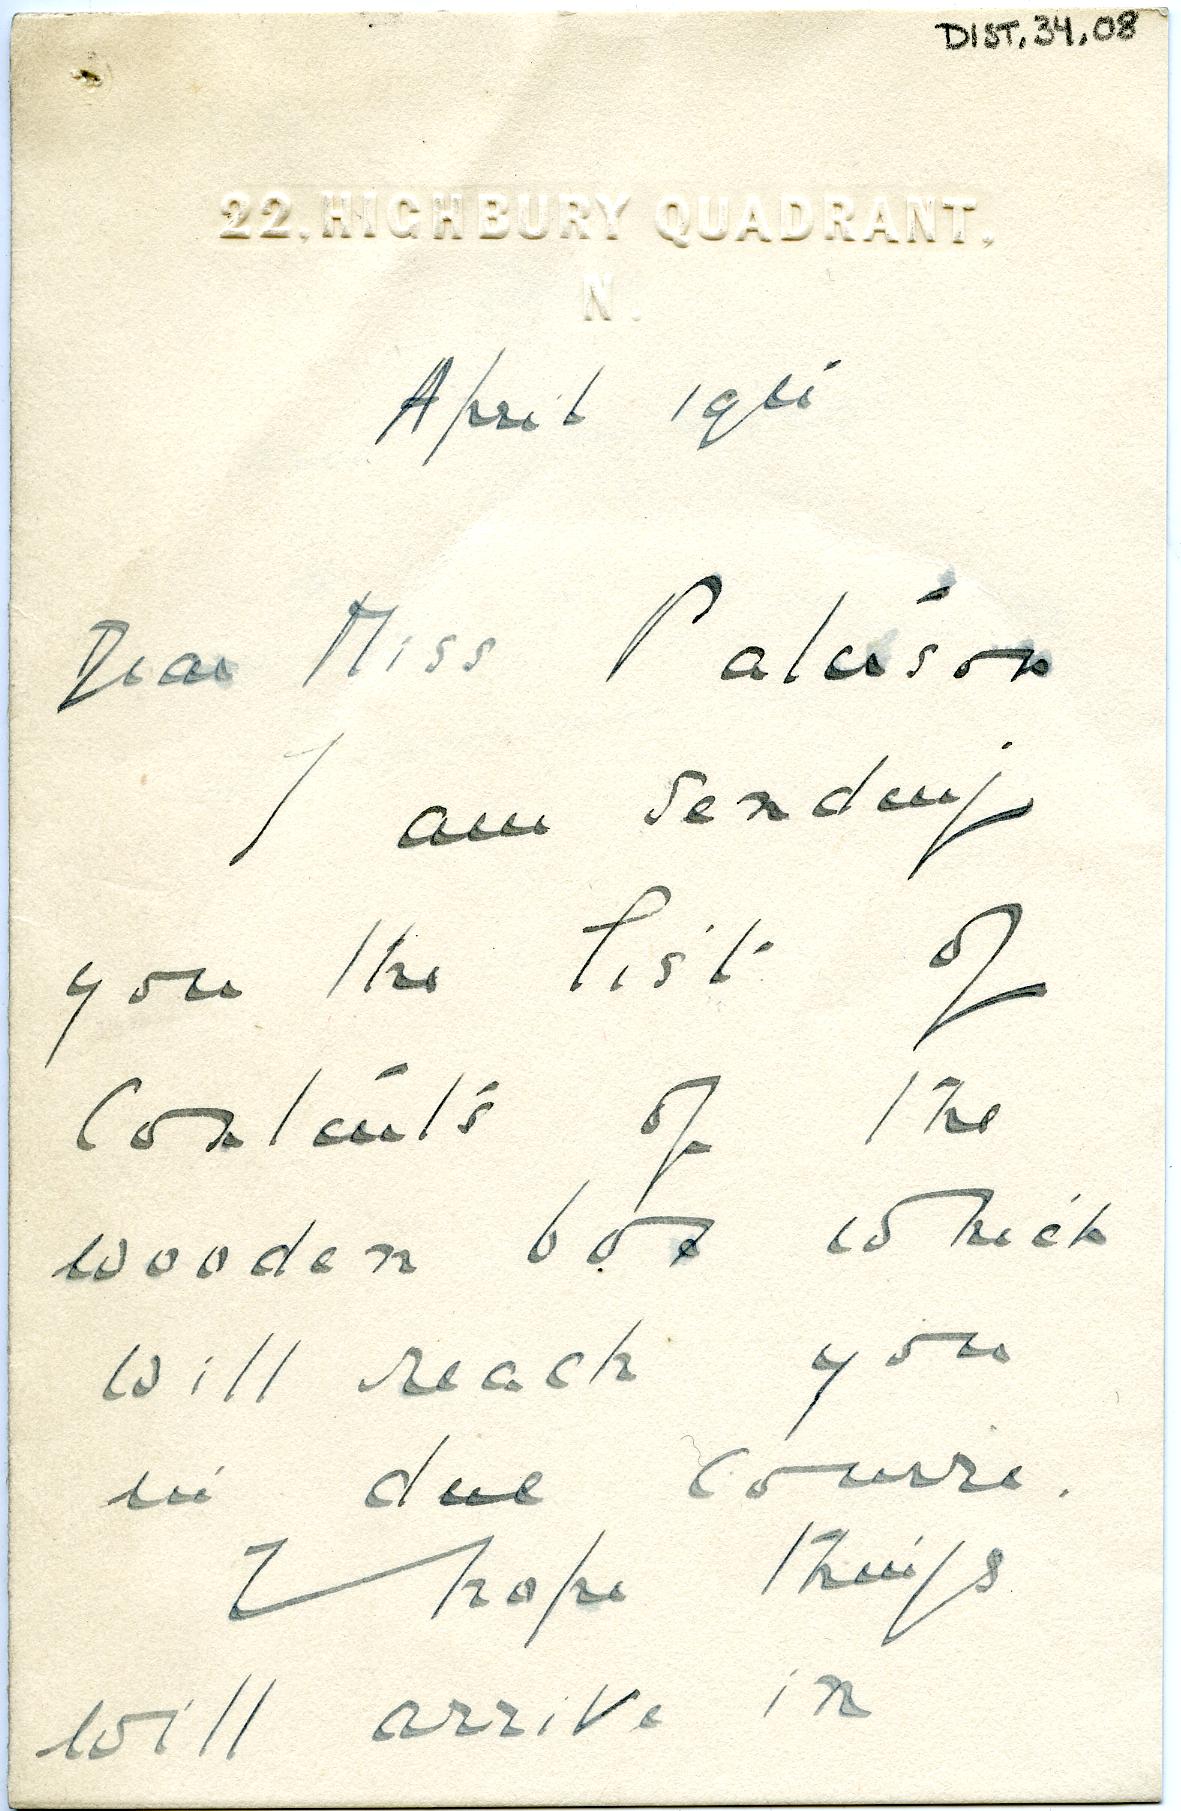 DIST.34.08
22, HIGHBURY QUADRANT,
N.
April 19th
Dear Miss Paterson
I am sending
you the list of
Contents of the
wooden box which
will reach you
in due course.
I hope things
will arrive in